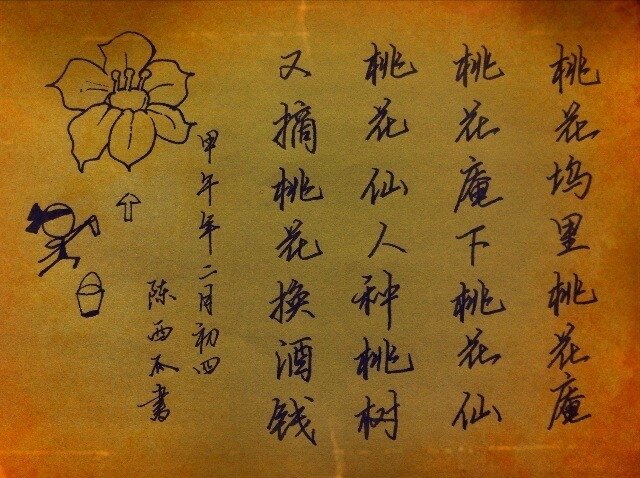 桃花坞里桃花庵
桃花庵下桃花仙
桃花仙人种桃树
又摘桃花换酒钱
甲午年二月初四
陈西瓜书